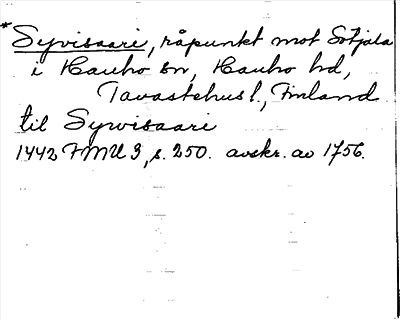 *Syvisaari, råpunkt mot Sotjala
i Hauho sn, Hauho hd,
Tavastehus l., Finland
til Sywisaari
1442 FMU 3, s. 250. avskr. av 1756.